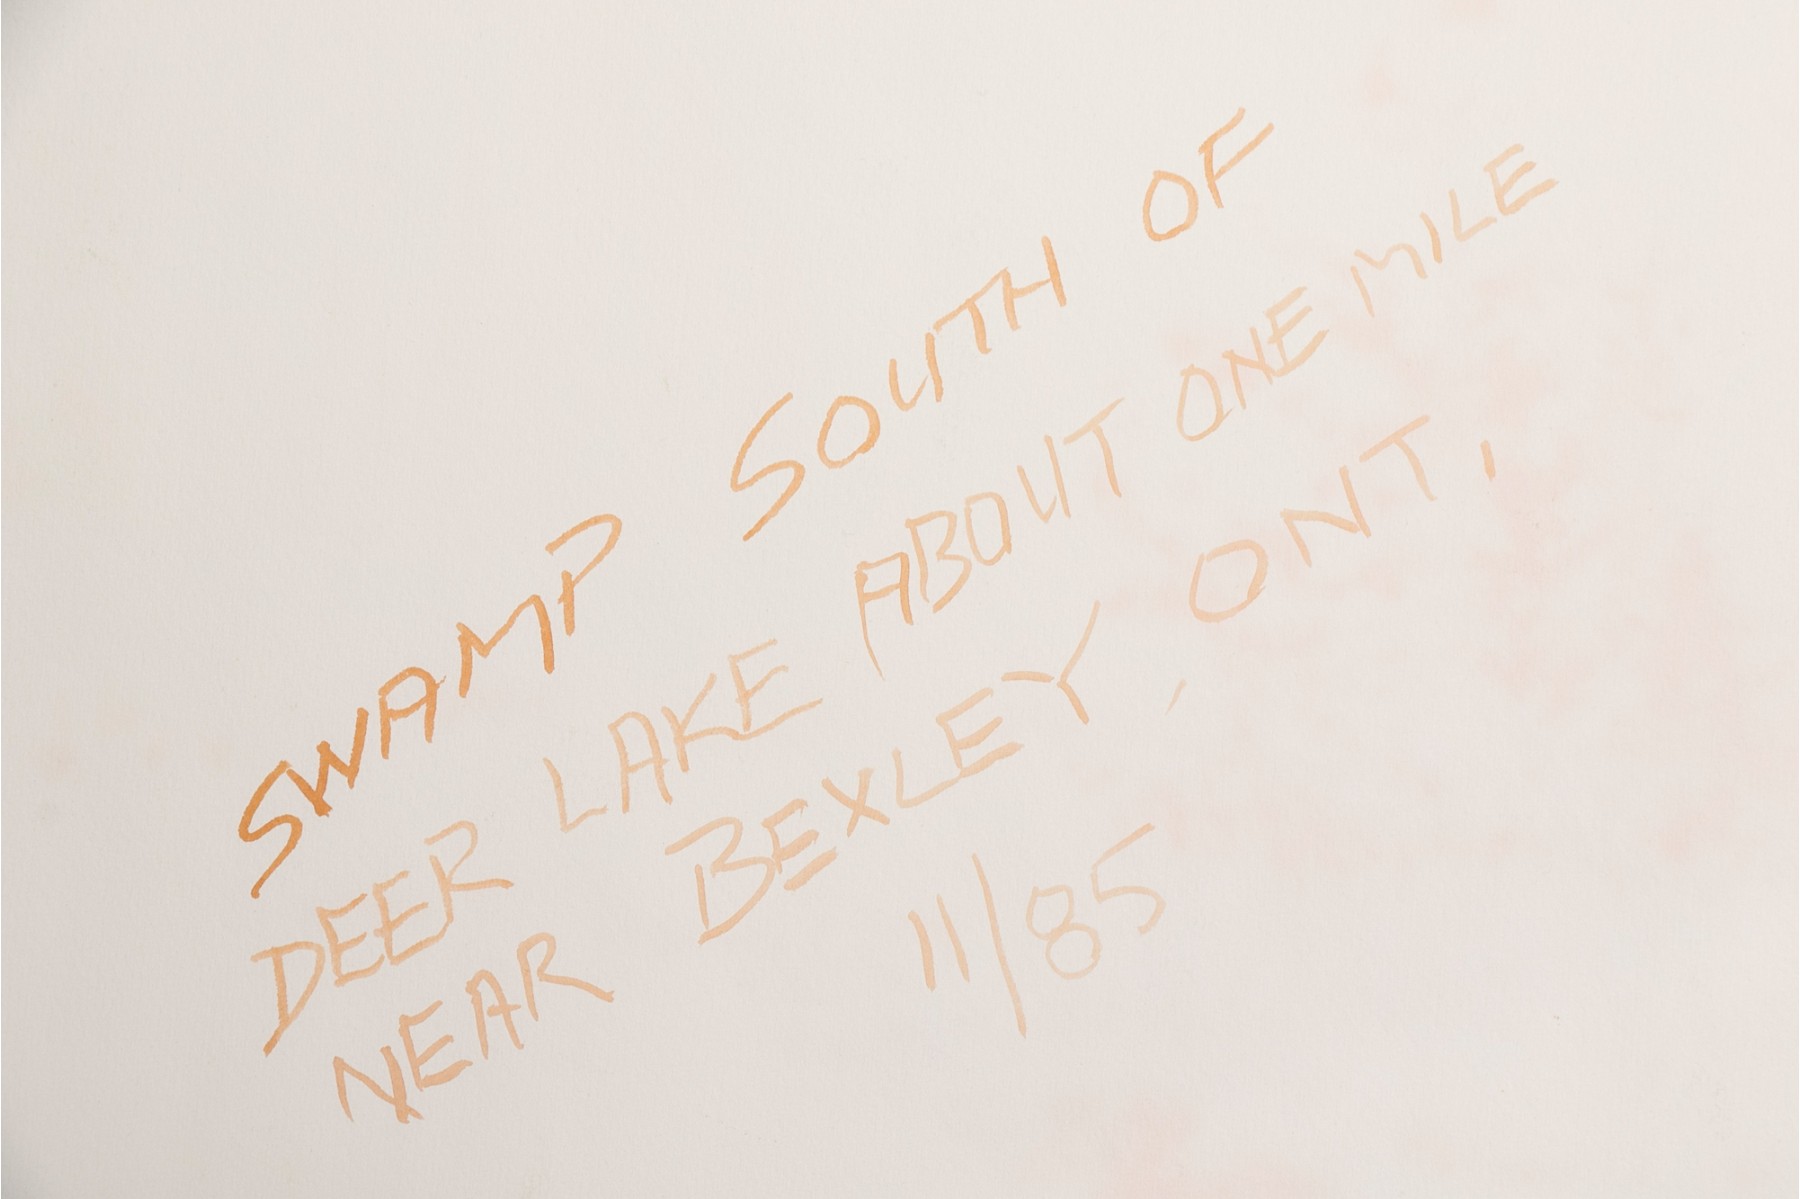 SWAMP SOUTH OF
DEER LAKE ABOUT ONE MILE
NEAR BEXLEY, ONT,
11/85